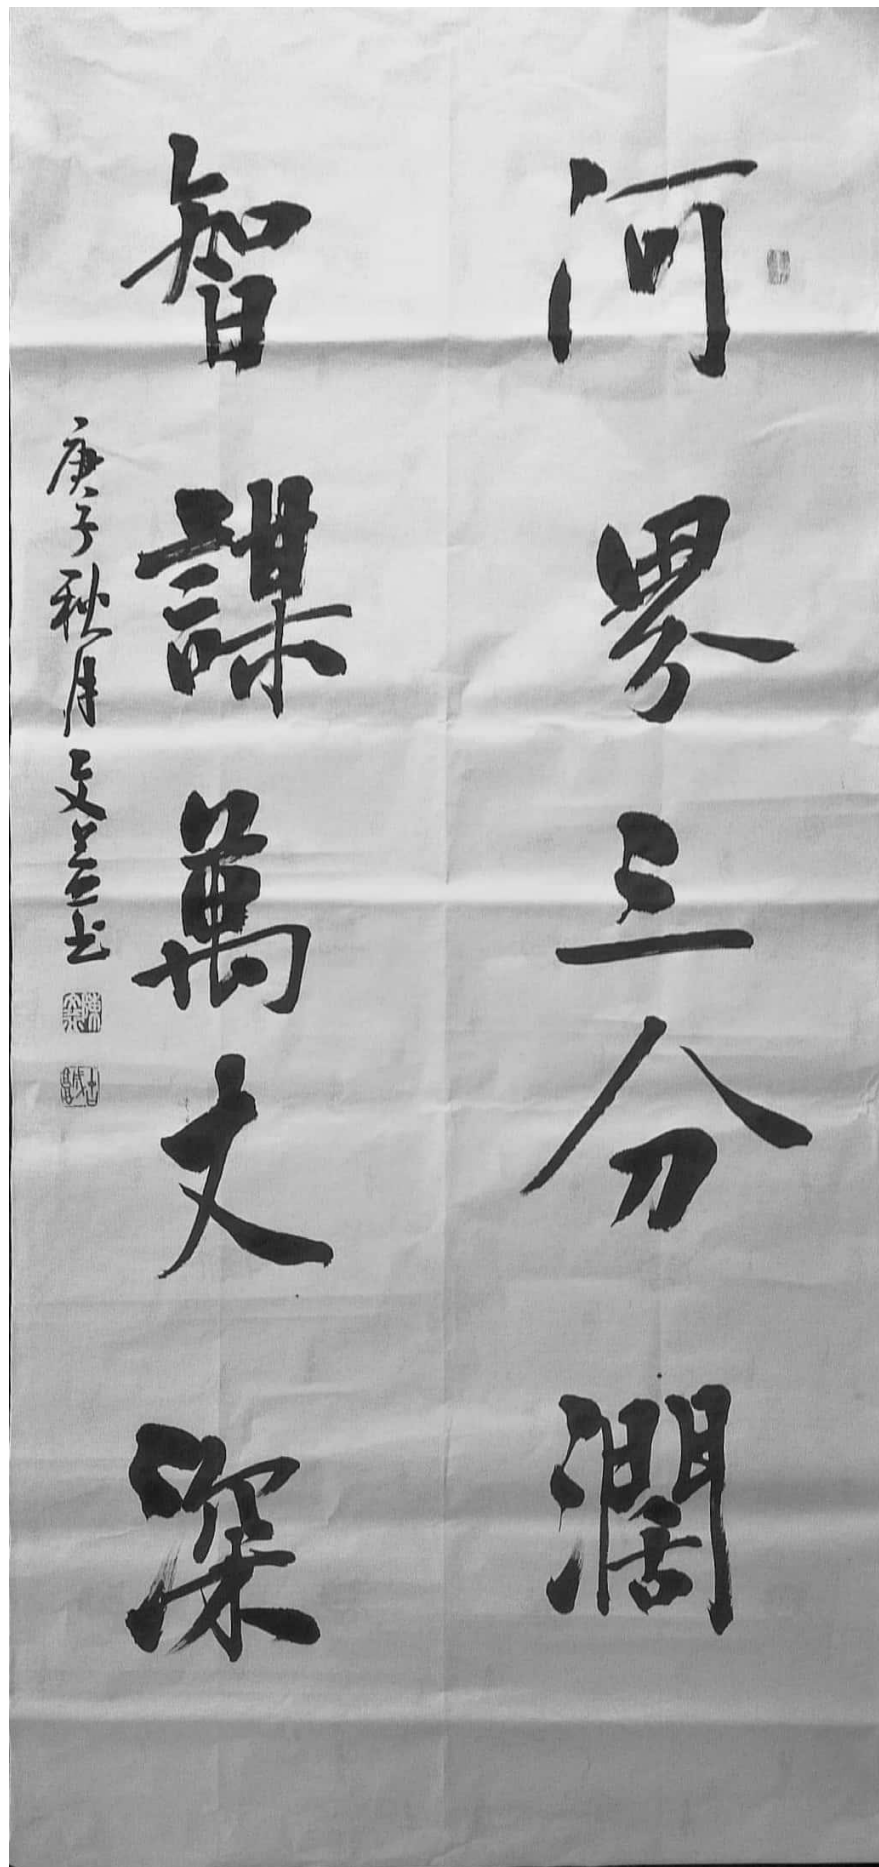 河界三分濶
智謀萬丈深
庚子秋月文益书